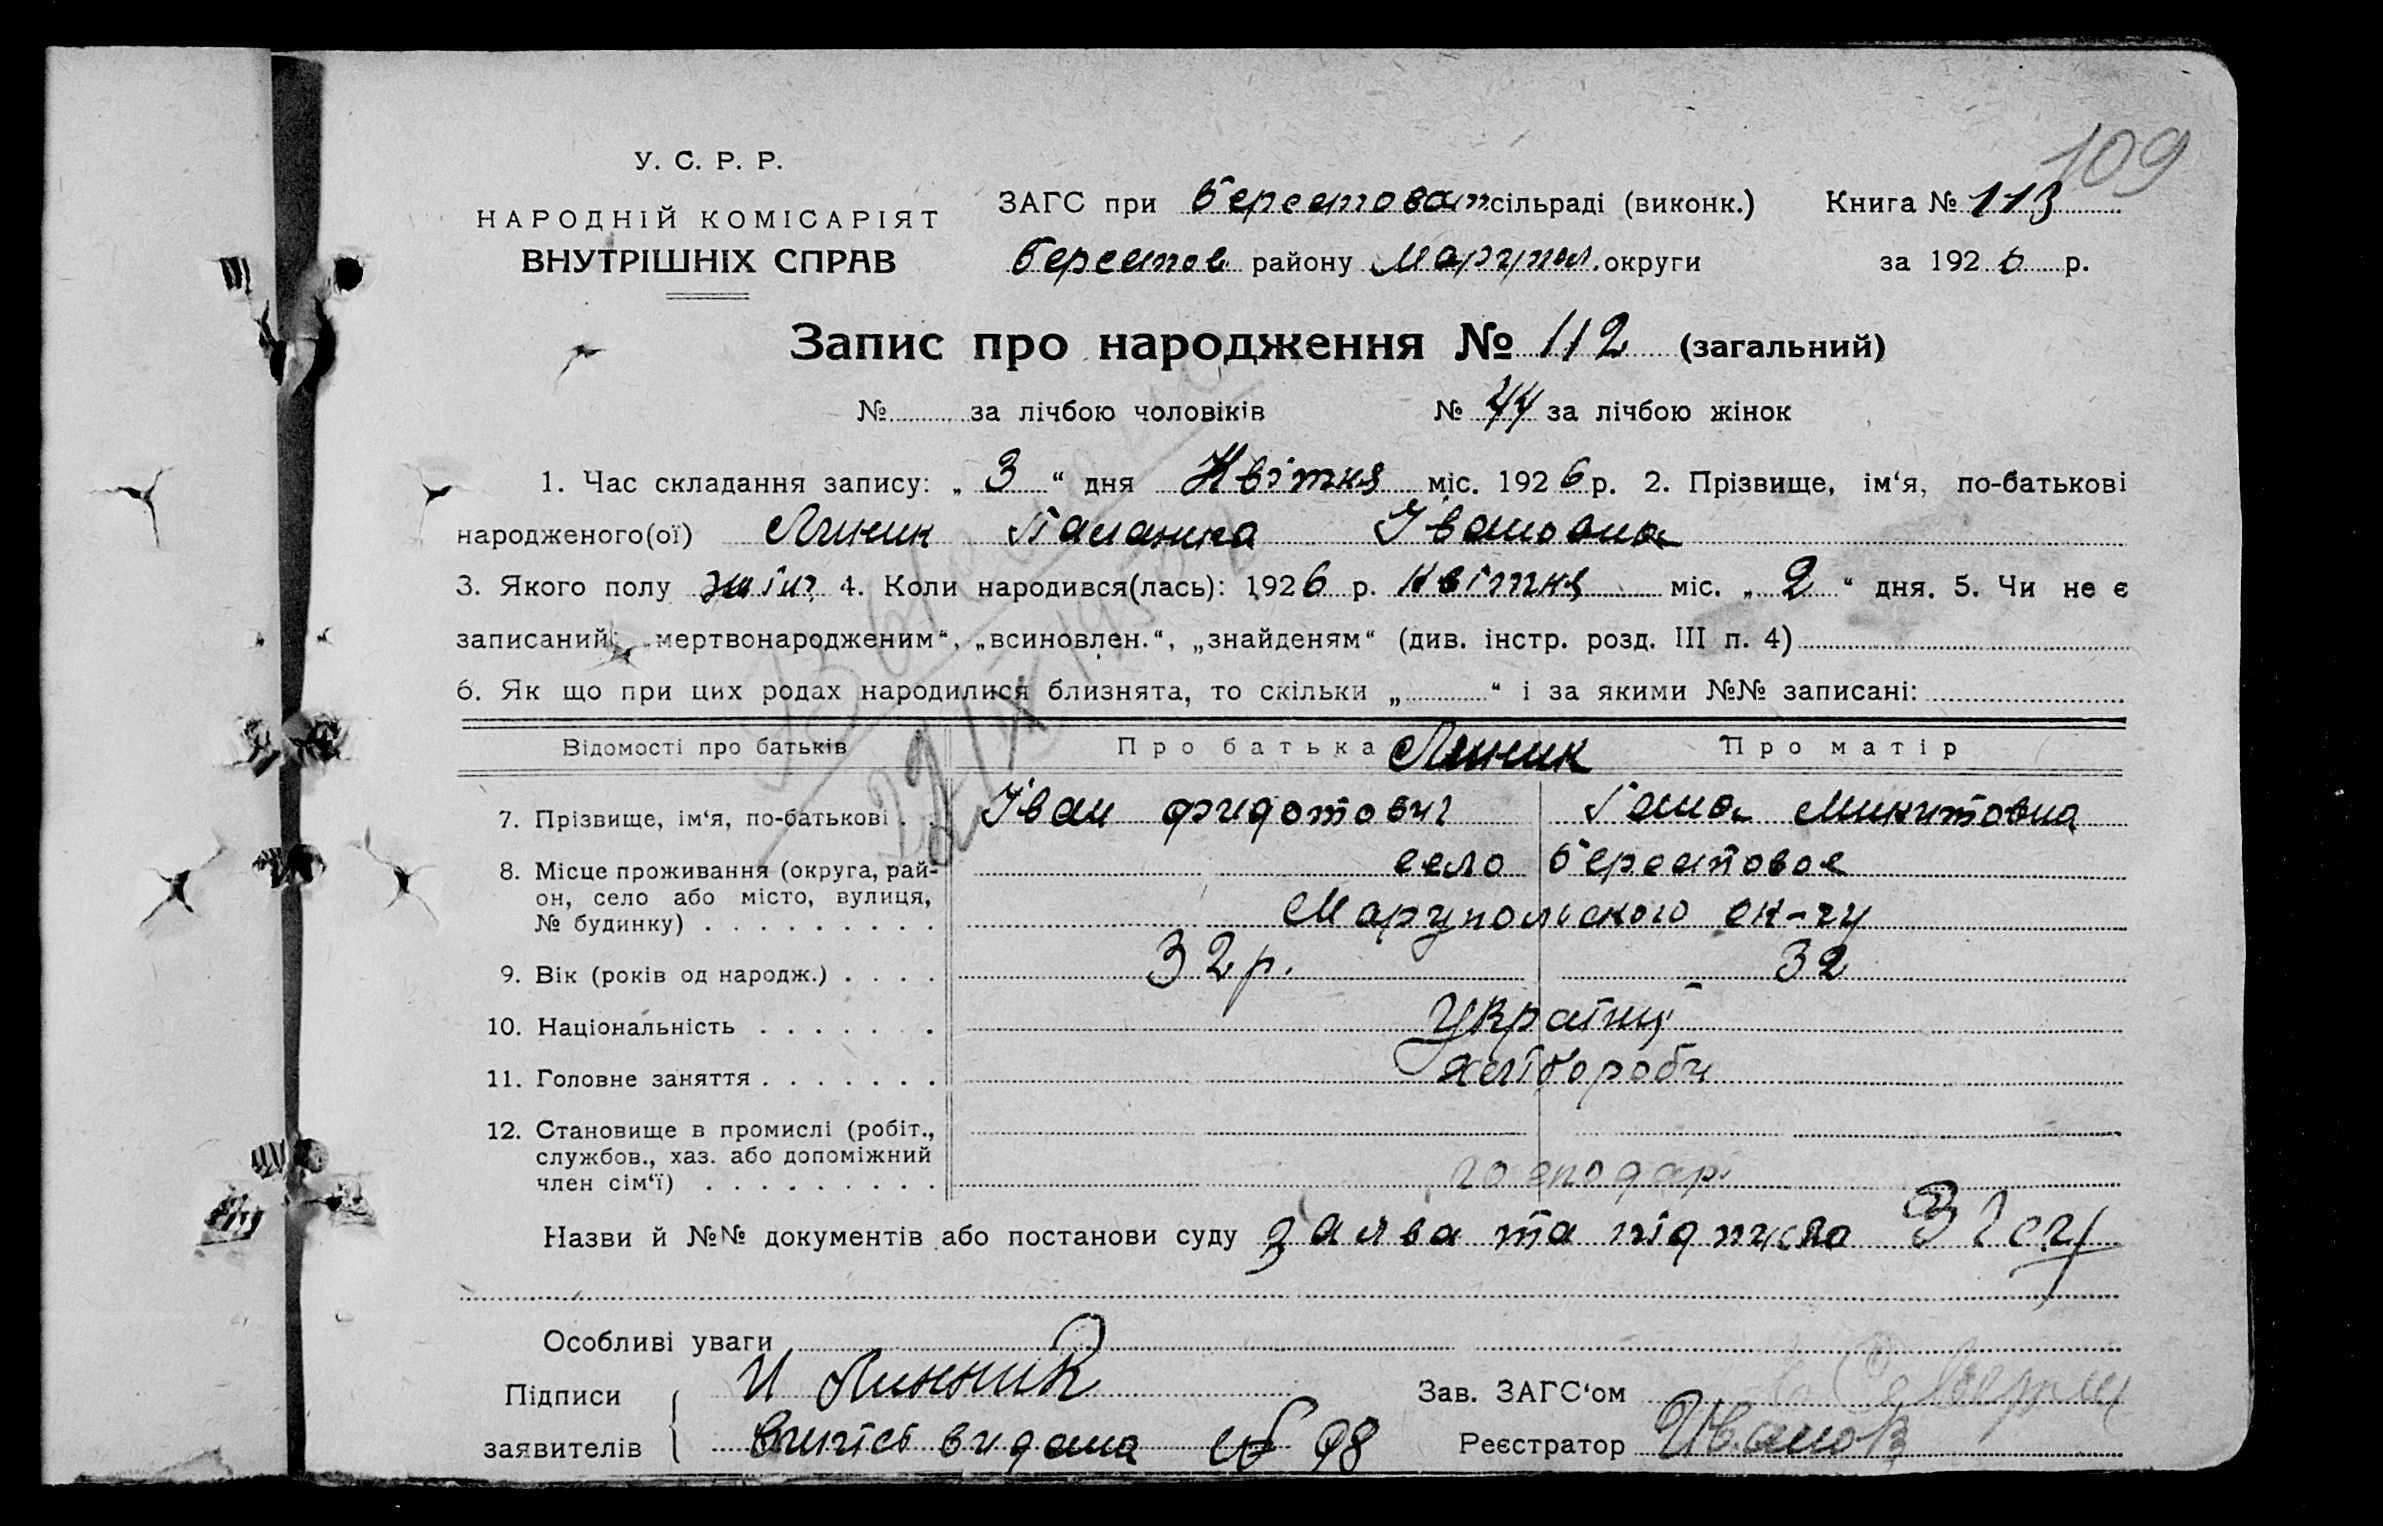 109
У. С. Р. Р.
НАРОДНІЙ КОМІСАРІЯТ
ВНУТРІШНІХ СПРАВ
ЗАГС при Берестоват сільраді (виконк.) Книга № 113
Берестов району Марупол. округи за 1926 р.
Запис про народження № 112 (загальний)
№ за лічбою чоловіків № 44 за лічбою жінок
1. Час складання запису: „ 3 “ дня Квітня міс. 1926 р. 2. Прізвище, ім‘я, по-батькові
народженого(ої) Линник Паланка Івановна
3. Якого полу жін 4. Коли народився(лась): 1926 р. Квітня міс. „ 2 “ дня. 5. Чи не є
записаний: „мертвонародженим“, „всиновлен.“, „знайденям“ (див. інстр. розд. III п. 4)
6. Як що при цих родах народилися близнята, то скільки „ “ і за якими №№ записані:
Відомості про батьків Про батька Линник Про матір
7. Прізвище, ім‘я, по-батькові . . Іван Фидотович Гана Микитовна
8. Місце проживання (округа, рай- село Берестовое
он, село або місто, вулиця,
№ будинку) . . . . . . . . . Марупольского ок-ги
9. Вік (років од народж.) . . . . 32 р. 32
10. Національність . . . . . . . Українці
11. Головне заняття . . . . . . . хлібороби
12. Становище в промислі (робіт.,
службов., хаз. або допоміжний
член сім‘ї) . . . . . . . . . господар.
Назви й №№ документів або постанови суду заява та підписка
Особливі уваги
Підписи И Линник Зав. ЗАГС‘ом
заявителів Випісь видана № 98 Реєстратор Иванов